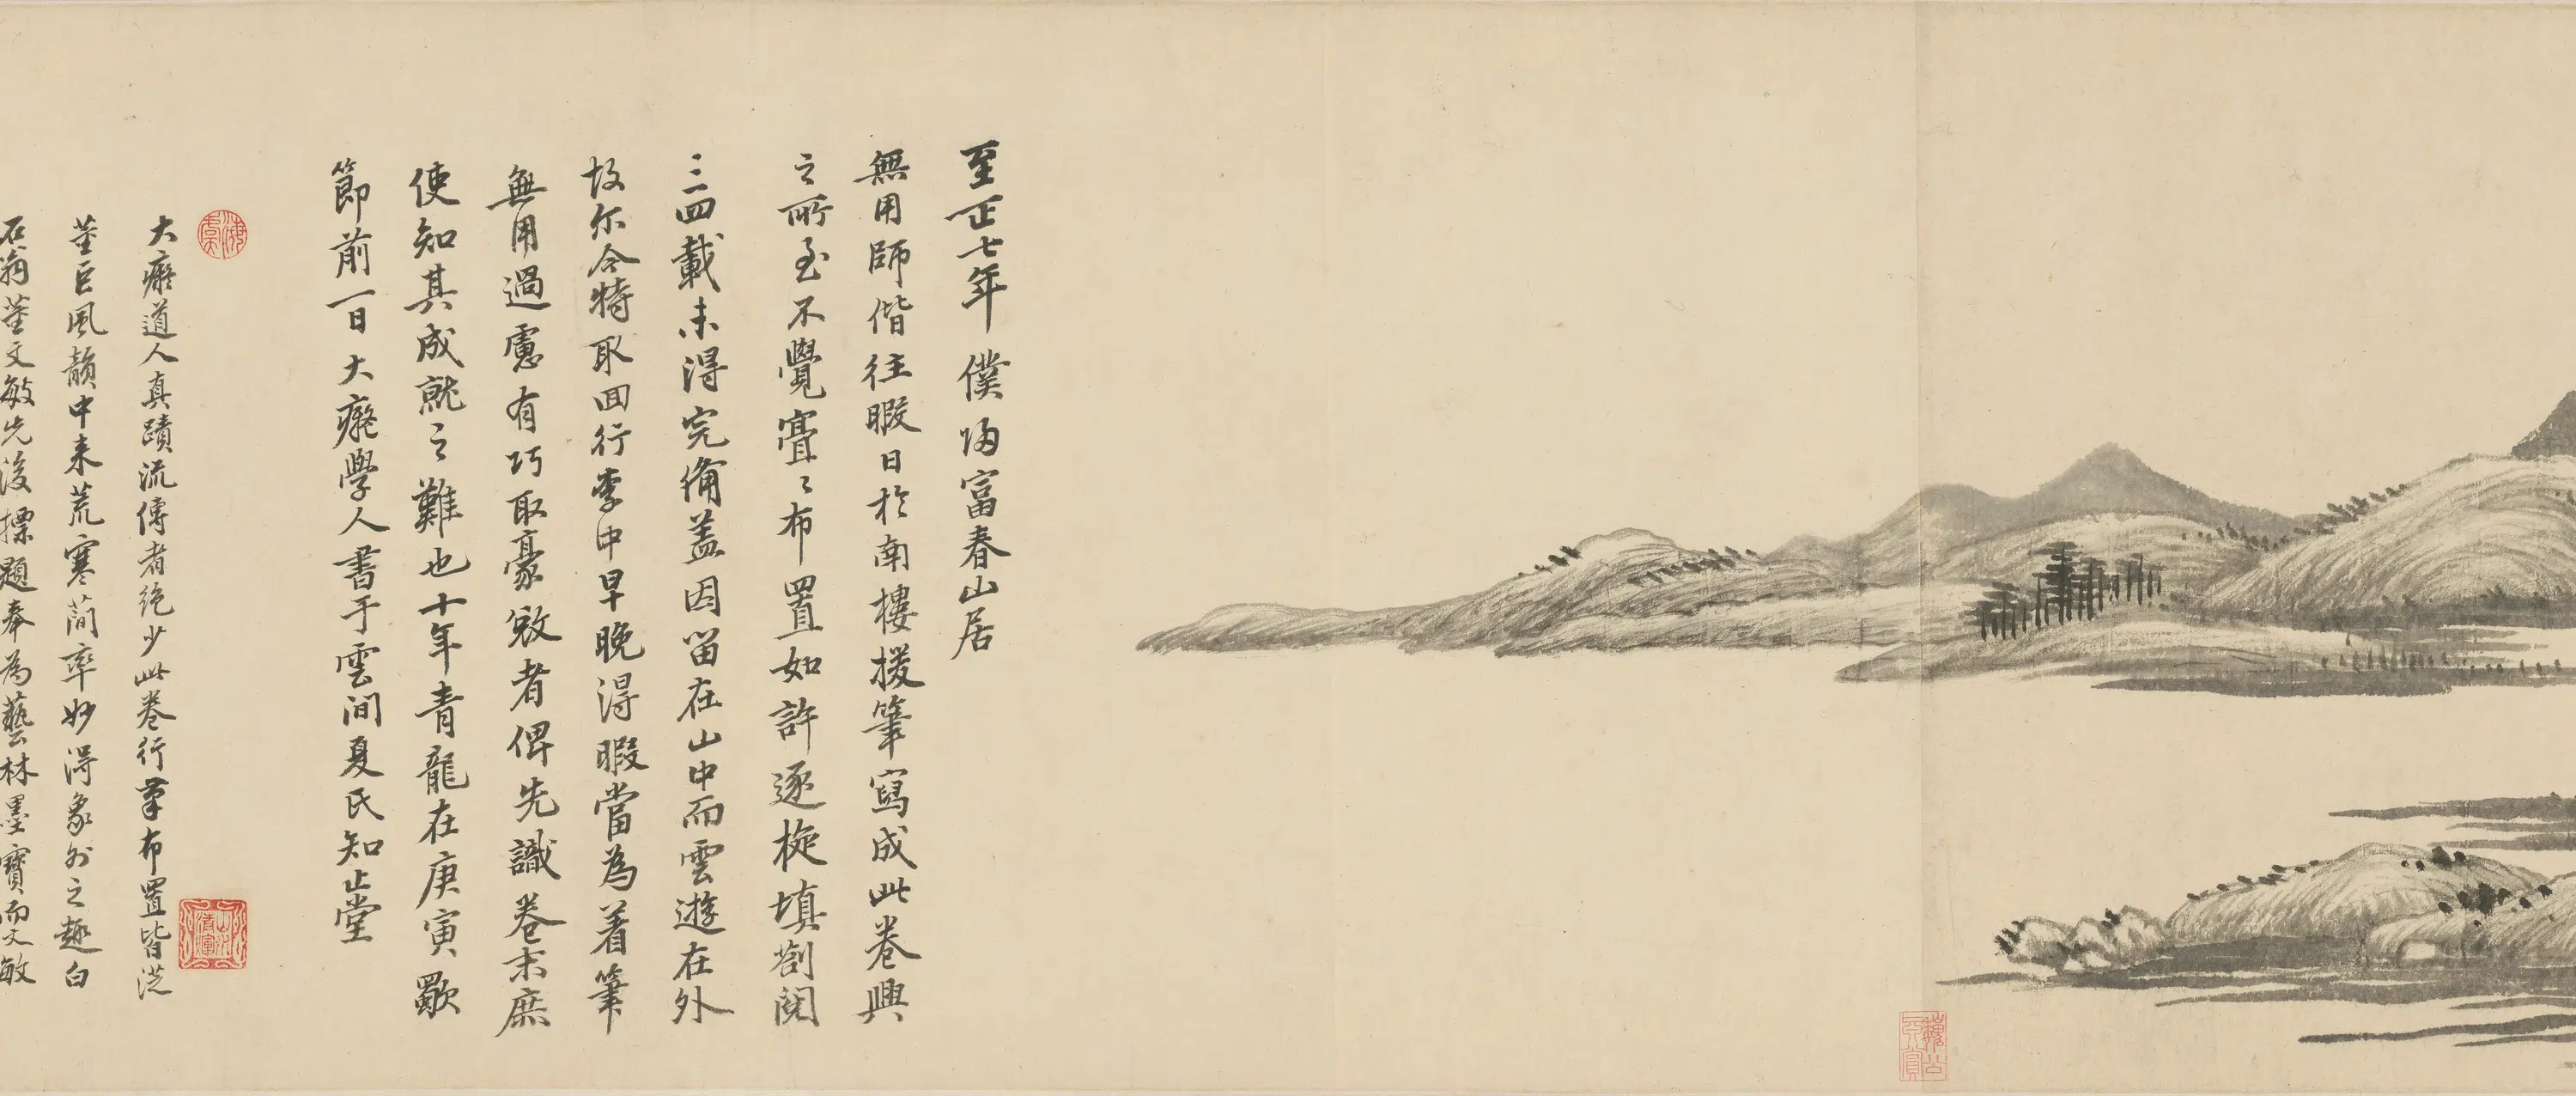 至正七年僕歸富春山居
無用師偕往暇日於南樓援筆寫成此卷興
之所至不覺亹〻布置如許逐旋填劄閱
三四載未得完備盖因留在山中而雲遊在外
故尔今特取回行李中早晚得暇當為着筆
無用過慮有巧取豪敓者俾先識卷末庶
使知其成就之難也十年青龍在庚寅歜
節前一日大癡學人書于雲間夏氏知止堂
大癡道人真蹟流傳者絕少此卷行筆布置皆從
董巨風韻中来荒寒蕑率妙得象外之趣白
石翁董文敏先後摽題奉為藝林墨寶而文敏